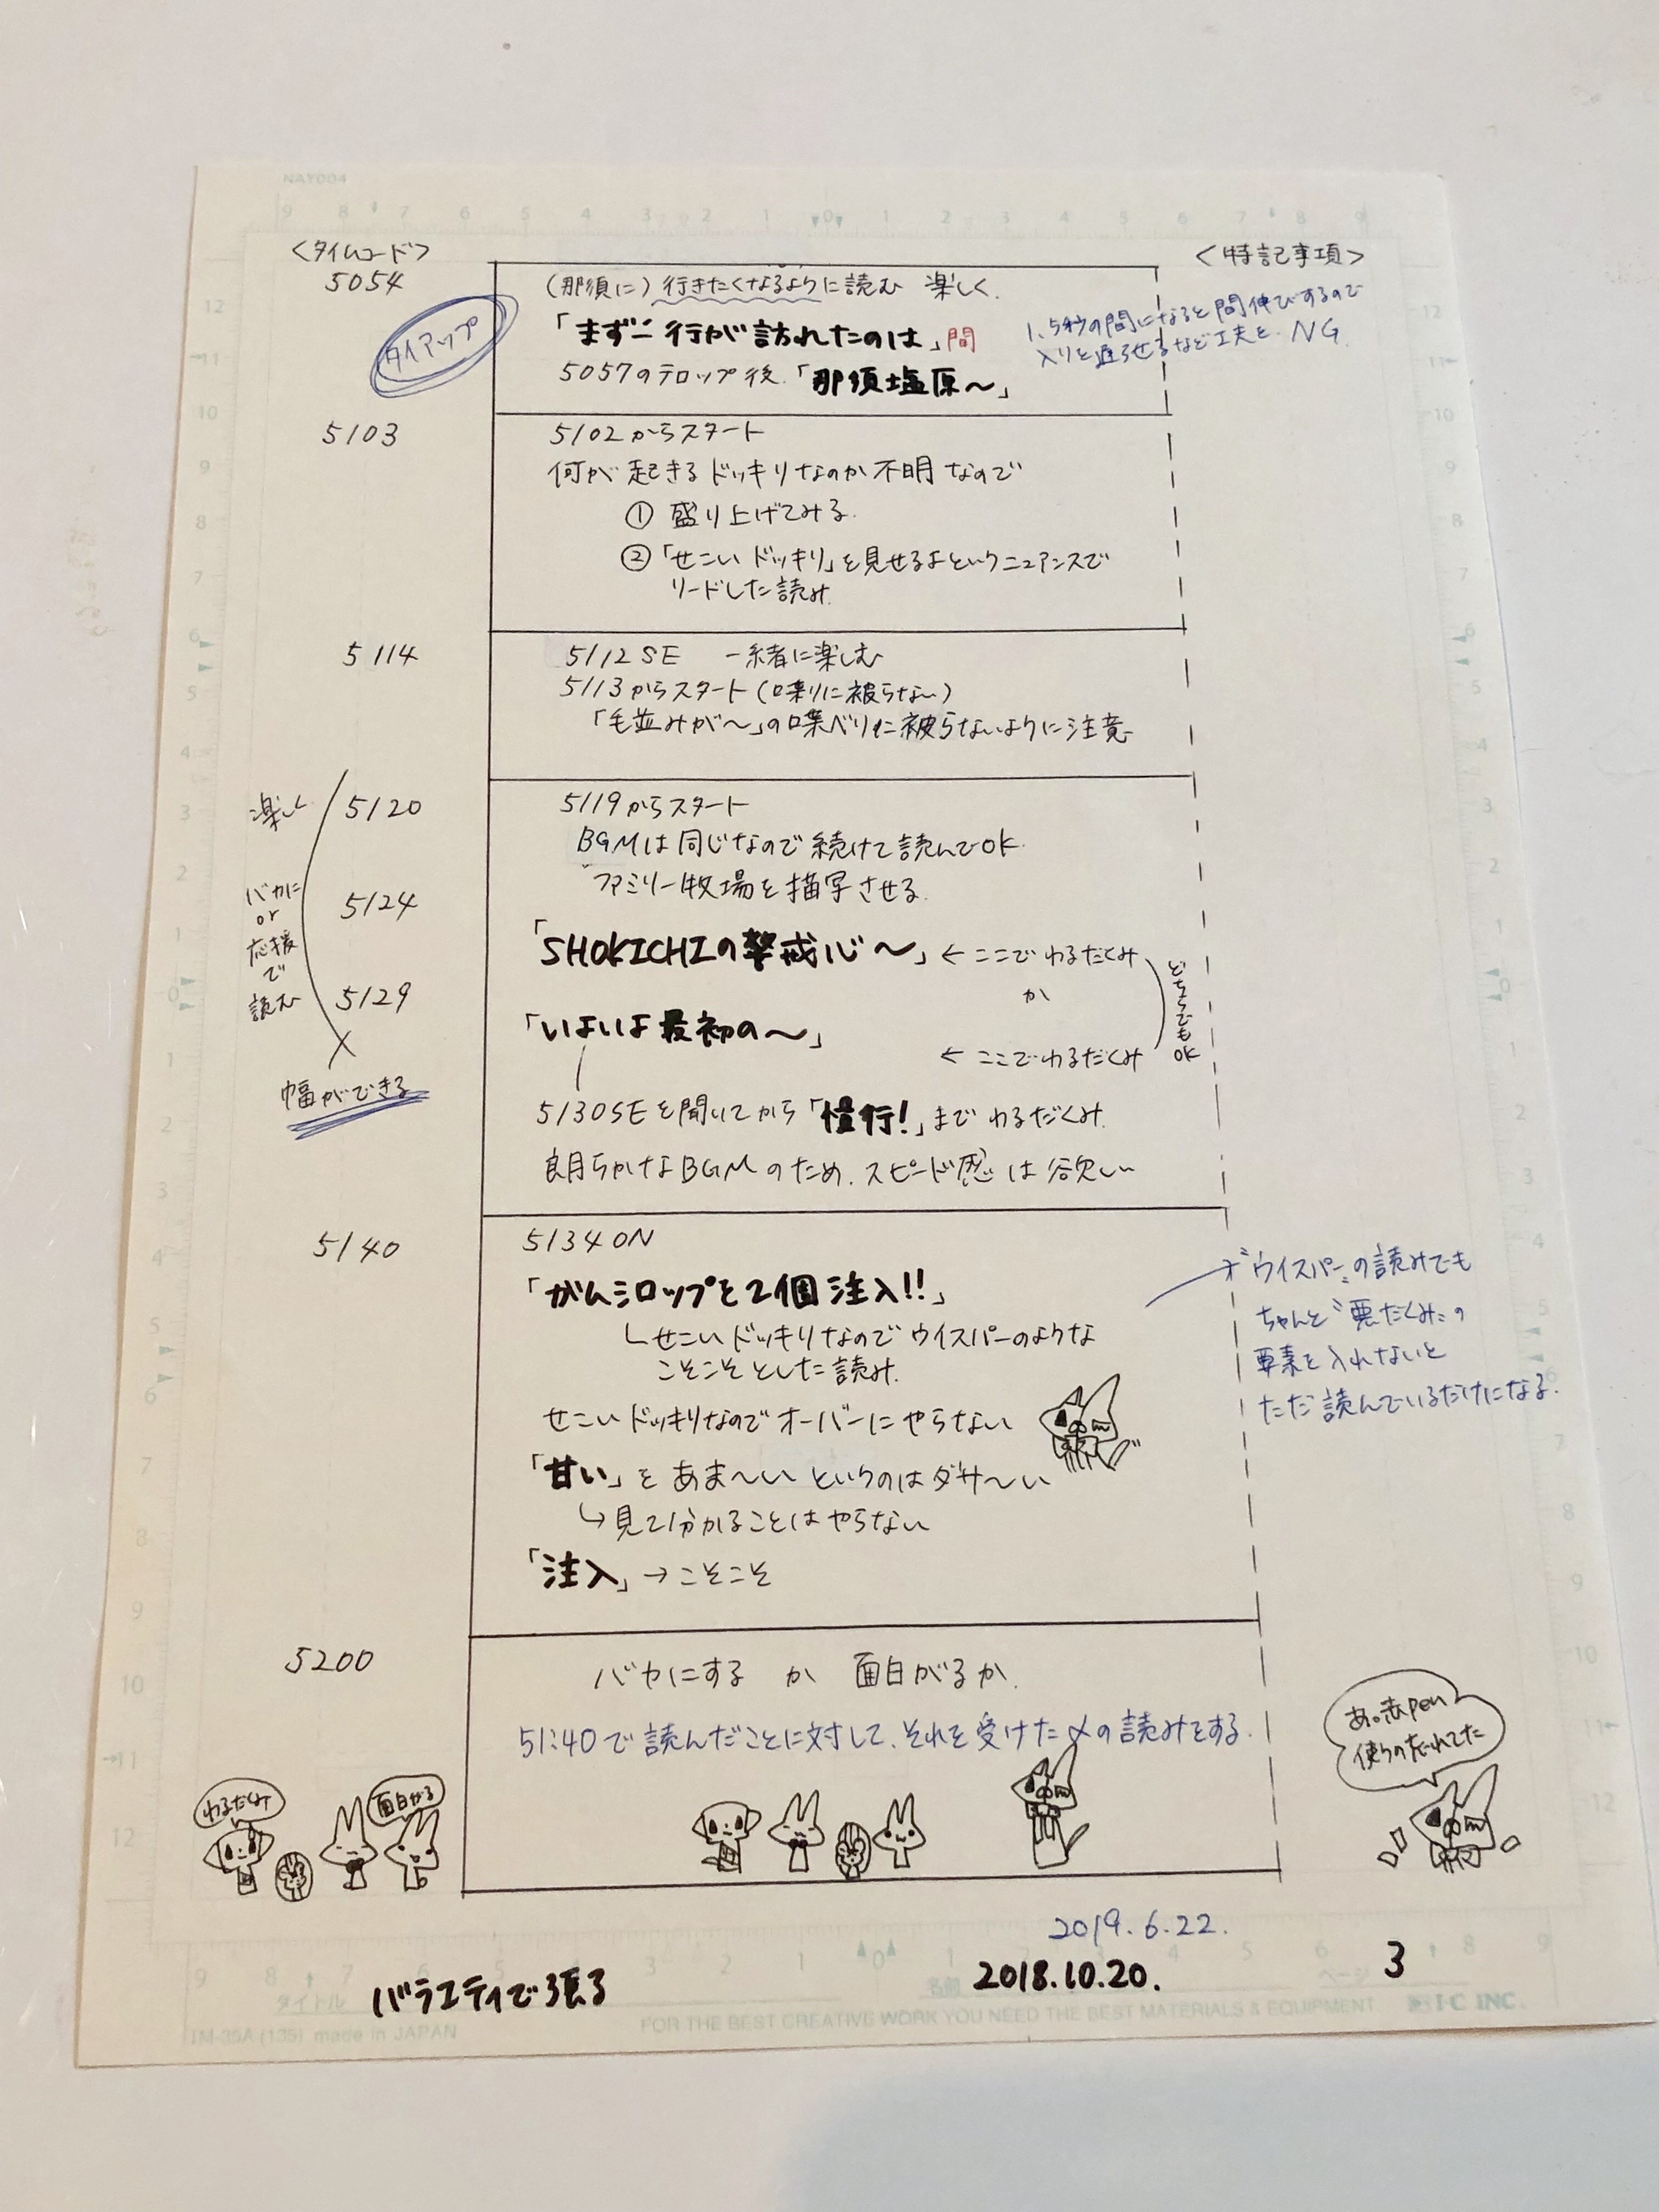 NAY004
<タイムコード>
<特記事項>
5054
(那須に)行きたくなるように読む 楽しく.
タイアップ
「まず一行が訪れたのは」間
1.5秒の間になると間伸びするので
入りを遅らせるなど工夫を. NG.
5057のテロップ後.「那須塩原〜」
5103
5102からスタート
何が起きるドッキリなのか不明なので
① 盛り上げてみる.
②「せこいドッキリ」を見せるよというニュアンスで
リードした読み.
5114
5112SE 一緒に楽しむ
5113からスタート(喋りに被らない)
「毛並みが〜」の喋べりに被らないように注意
楽しく
バカに
or
応援
で
読む
5120
5124
5129
幅ができる
5119からスタート
BGMは同じなので続けて読んでOK.
ファミリー牧場を描写させる.
「SHOKICHIの警戒心〜」← ここでわるだくみ
か
「いよいよ最初の〜」
← ここでわるだくみ
どちらでもOK
5130SEを聞いてから「慣行!」までわるだくみ.
朗らかなBGMのため.スピード感は欲しい
5140
5134ON
「がムシロップを2個注入!!」
せこいドッキリなのでウイスパーのような
こそこそとした読み.
せこいドッキリなのでオーバーにやらない
「甘い」を あま〜い というのはダサ〜い
↳ 見て分かることはやらない
「注入」→こそこそ
“ウイスパー”の読みでも
ちゃんと“悪だくみ”の
要素を入れないと
ただ読んでいるだけになる.
5200
バカにする か 面白がるか.
51:40で読んだことに対して、それを受けた〆の読みをする.
わるだくみ
面白がる
あ。赤pen
使うの忘れてた
2019.6.22.
バラエティで張る
2018.10.20.
3
タイトル
名前
ページ
IM-35A (135) made in JAPAN
FOR THE BEST CREATIVE WORK YOU NEED THE BEST MATERIALS & EQUIPMENT
I·C INC.